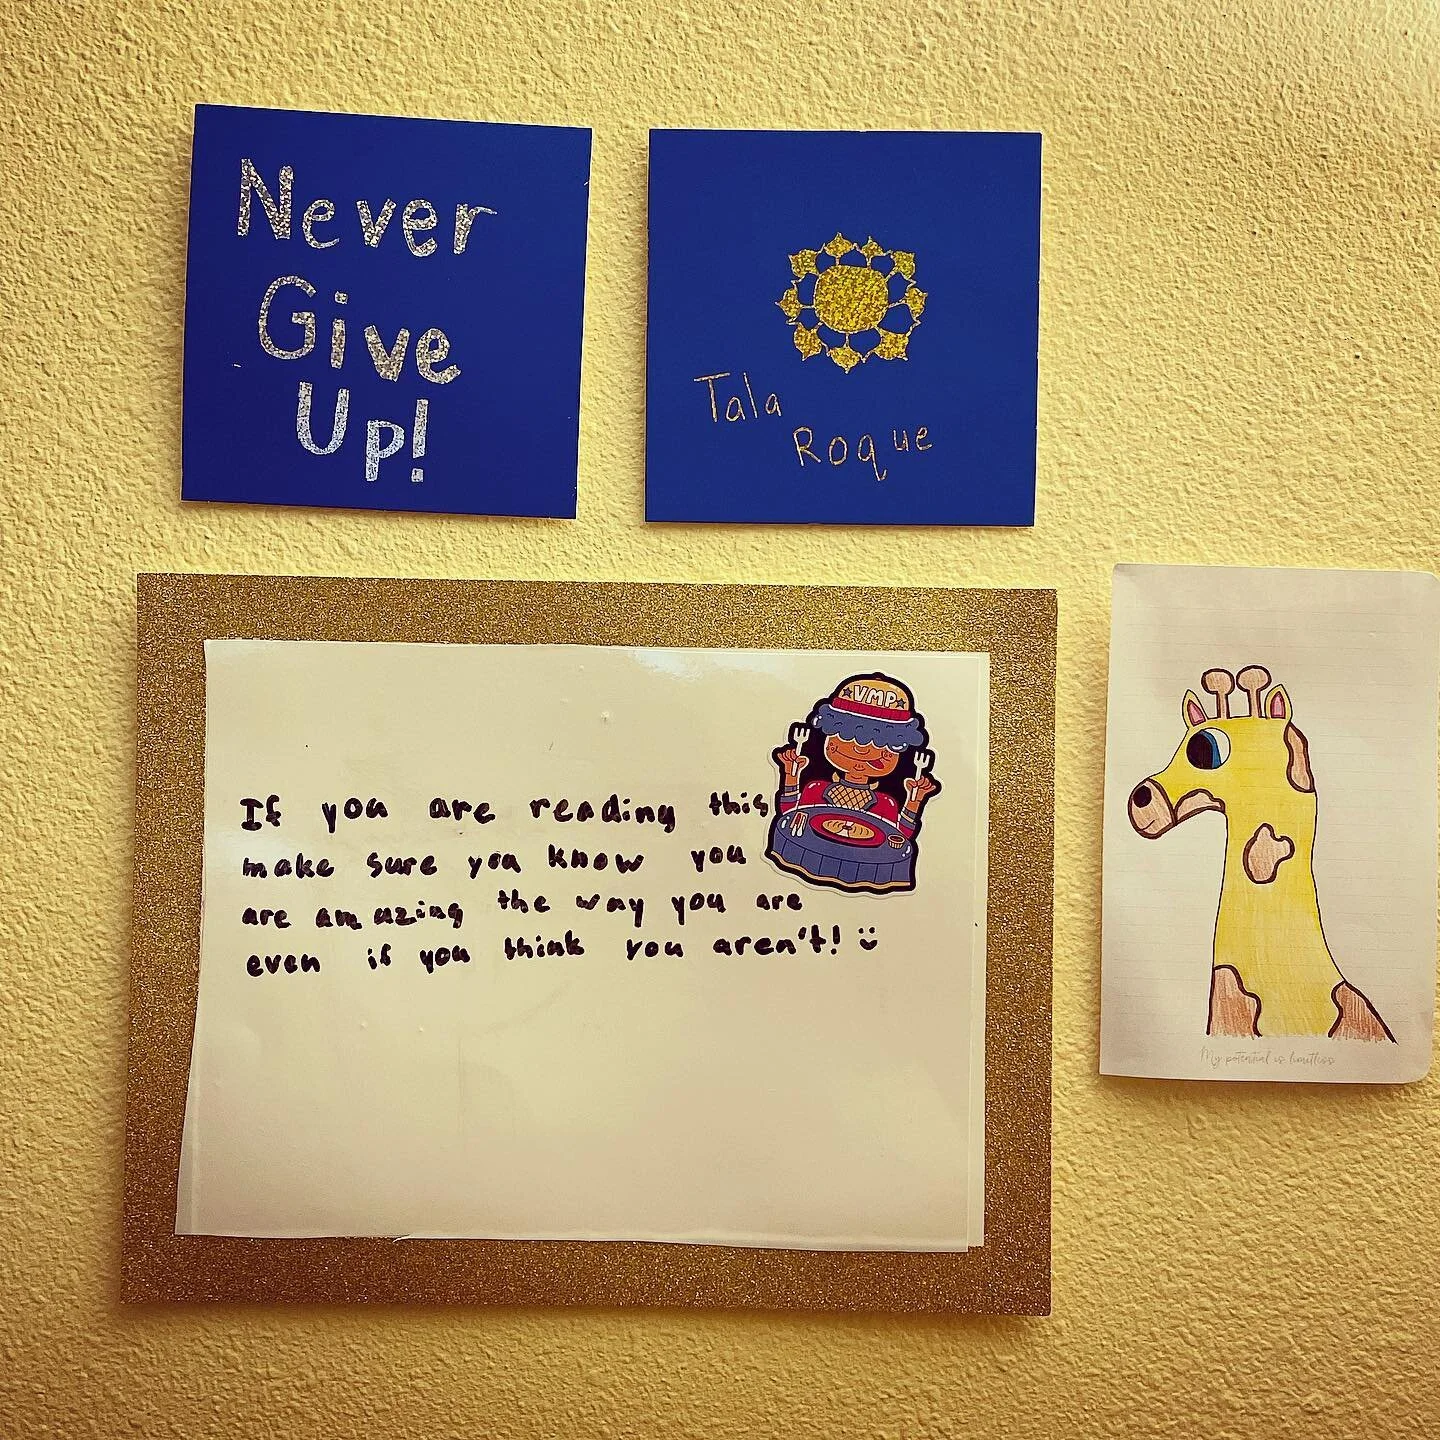 Never
Give
Up!
Tala
Roque
VMP
If you are reading this
make sure you know you
are amazing the way you are
even if you think you aren't! :)
My potential is limitless